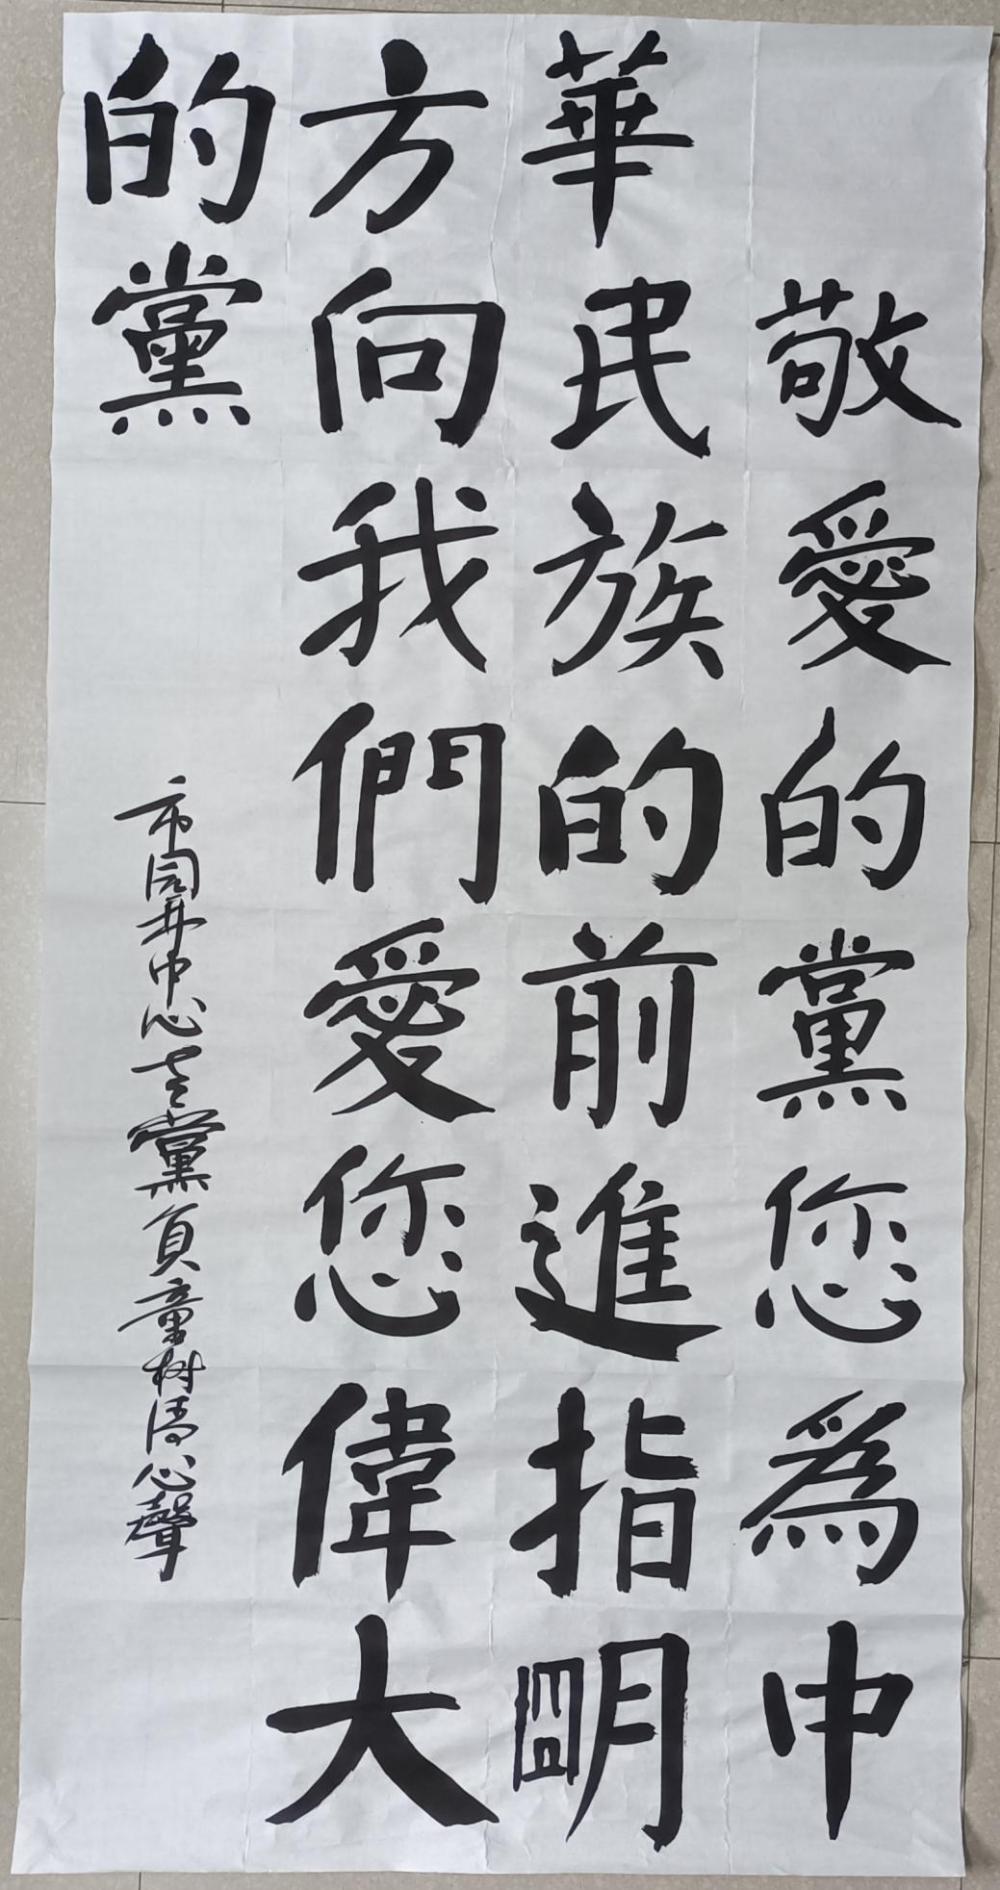 敬愛的黨您為中
華民族的前進指明
方向我們愛您偉大
的黨
市園林中心老黨員童樹清心聲